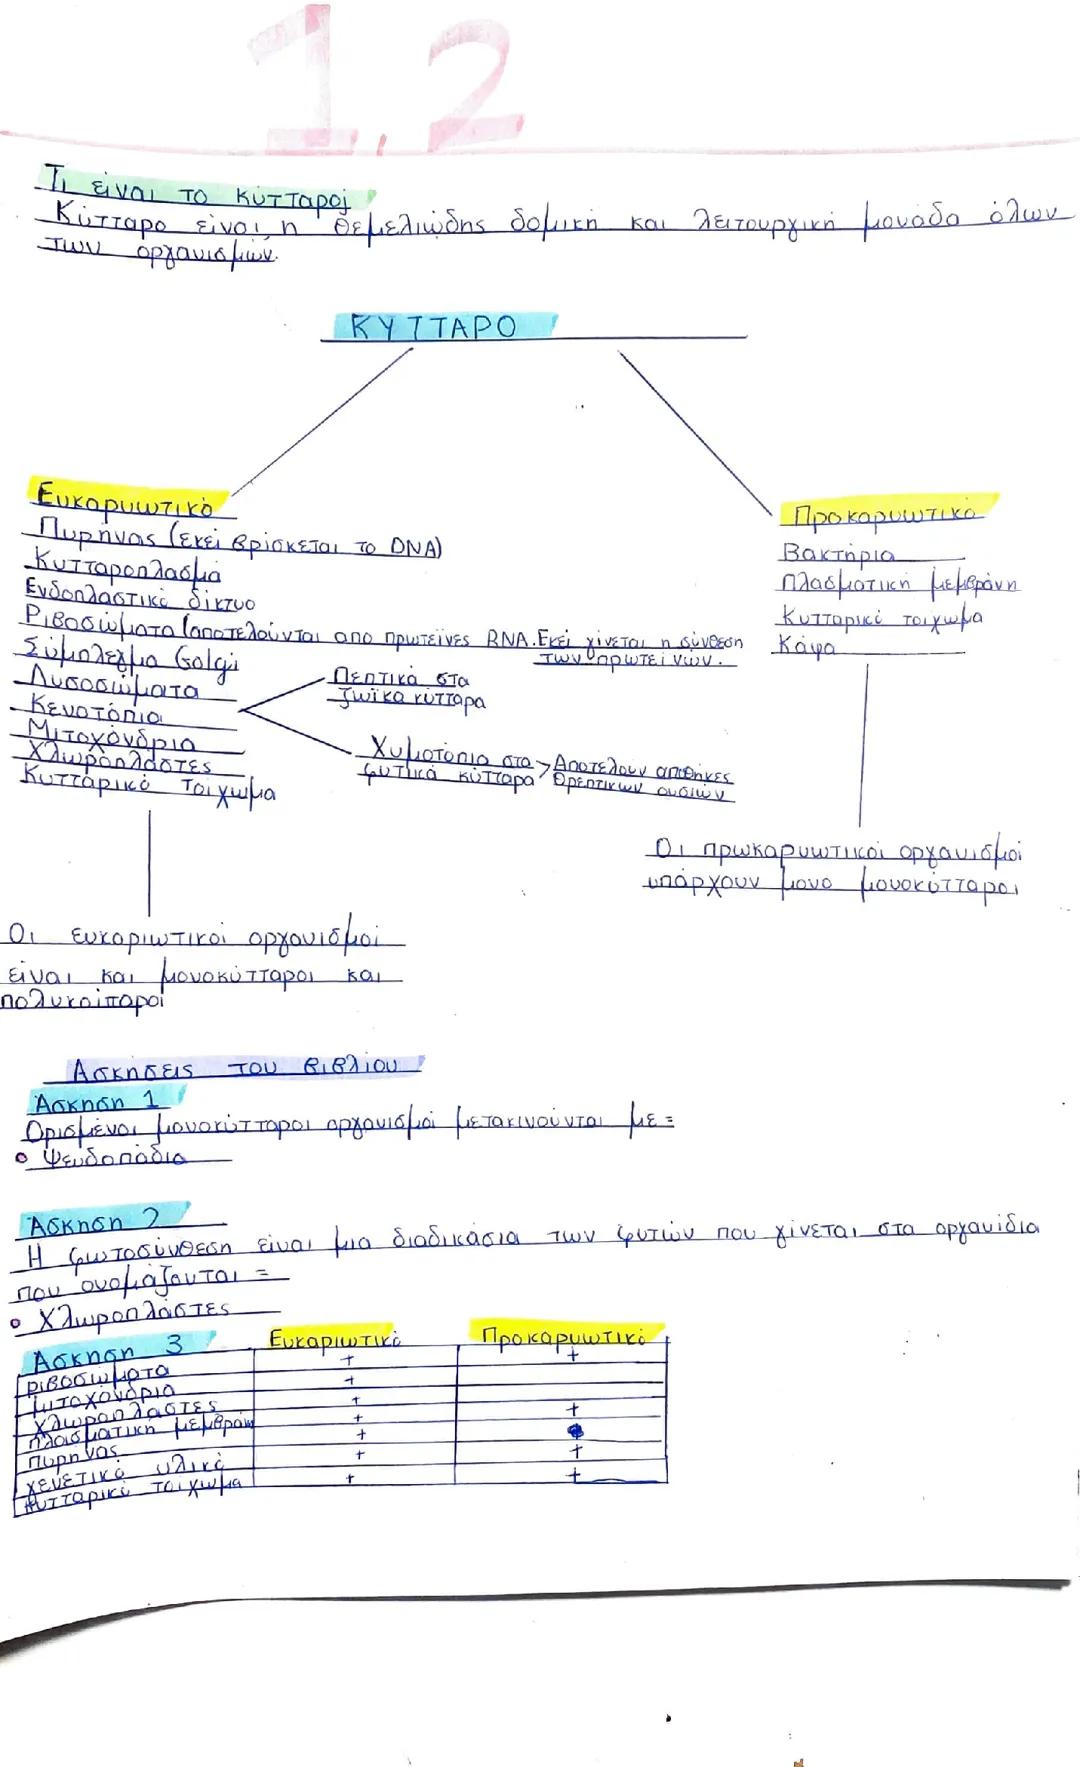 1.2
Τι είναι το κύτταρο;
Κύτταρο είναι η θεμελιώδης δομική και λειτουργική μονάδα όλων
των οργανισμών.
ΚΥΤΤΑΡΟ
Ευκαρυωτικό
Πυρήνας (εκεί βρίσκεται το DNA)
Κυτταροπλασμά
Ενδοπλαστικό δίκτυο
Ριβοσώματα (αποτελούνται απο πρωτεϊνες RNA. Εκεί γίνεται η σύνθεση
των πρωτεϊνών.
Σύμπλεγμα Golgi
Λυσοσώματα
Κενοτόπια
Μιτοχόνδρια
Χλωροπλάστες
Κυτταρικό τοίχωμα
Πεπτικά στα
ζωϊκα κύτταρα
Χυμοτόπια στα
φυτικά κύτταρα
Αποτελουν αποθήκες
θρεπτικων ουσιών
Οι ευκαριωτικοί οργανισμοί
είναι και μονοκύτταροι και
πολυκοίταροί
Προκαρυωτικό
Βακτήρια
Πλασματική μεμβράνη
Κυτταρικό τοίχωμα
Κάψα
Οι πρωκαρυωτικοί οργανισμοί
υπάρχουν μονο μονοκύτταροι
Ασκήσεις του βιβλίου
Άσκηση 1
Ορισμένοι μονοκύτταροι οργανισμοί μετακινούνται με =
• Ψευδοπόδια
Άσκηση 2
Η φωτοσύνθεση είναι μια διαδικάσια των φυτών που γίνεται στα οργανίδια
που ονομάζονται =
• Χλωροπλάστες
Άσκηση 3 Ευκαριωτικό Προκαρυωτικό
ριβοσώματα + +
μιτοχόνδρια +
χλωροπλάστες +
πλασματική μεμβράνη + +
πυρήνας +
γενετικό υλικό + +
κυτταρικό τοίχωμα + +